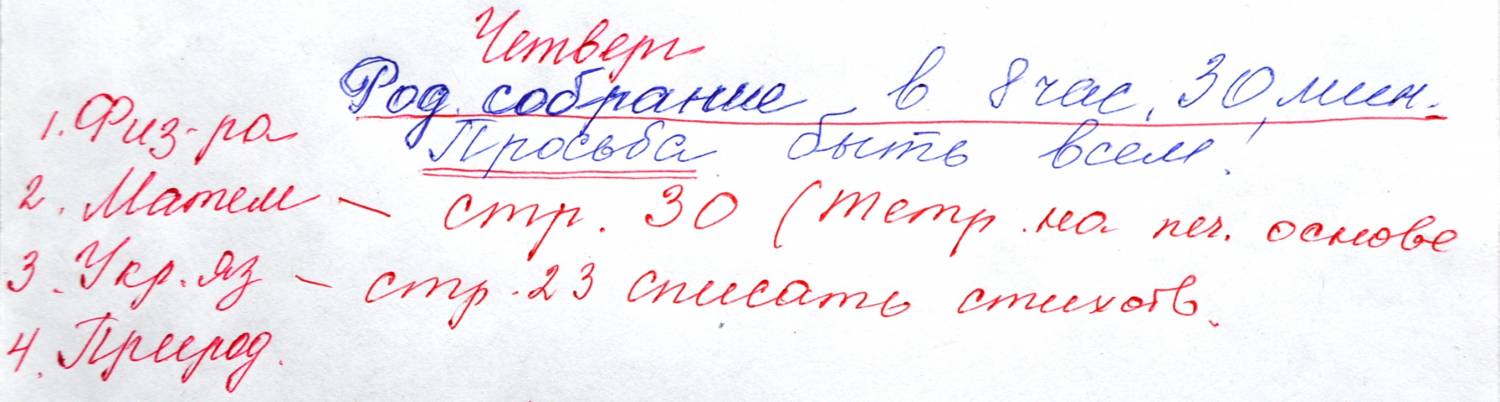 Четверг
Род. собрание в 8 час. 30 мин.
1. Физ-ра
Просьба быть всем!
2. Матем – стр. 30 (тетр. на печ. основе
3. Укр. яз – стр. 23 списать стихотв.
4. Природ.